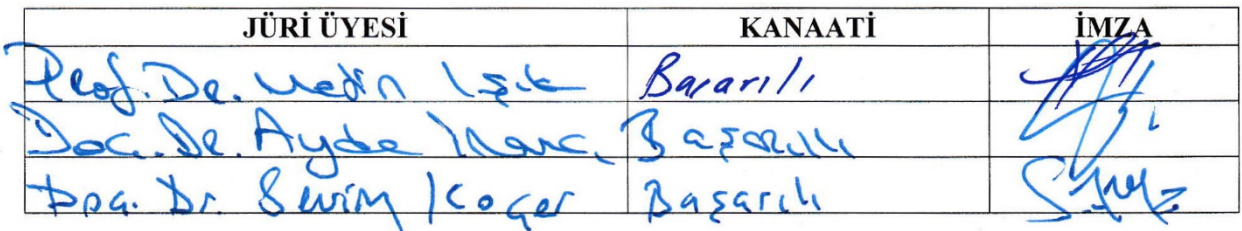 JÜRİ ÜYESİ KANAATİ İMZA
Prof. Dr. Metin Işık Başarılı
Doç. Dr. Ayda Başarılı
Doç. Dr. Sevim Koçer Başarılı